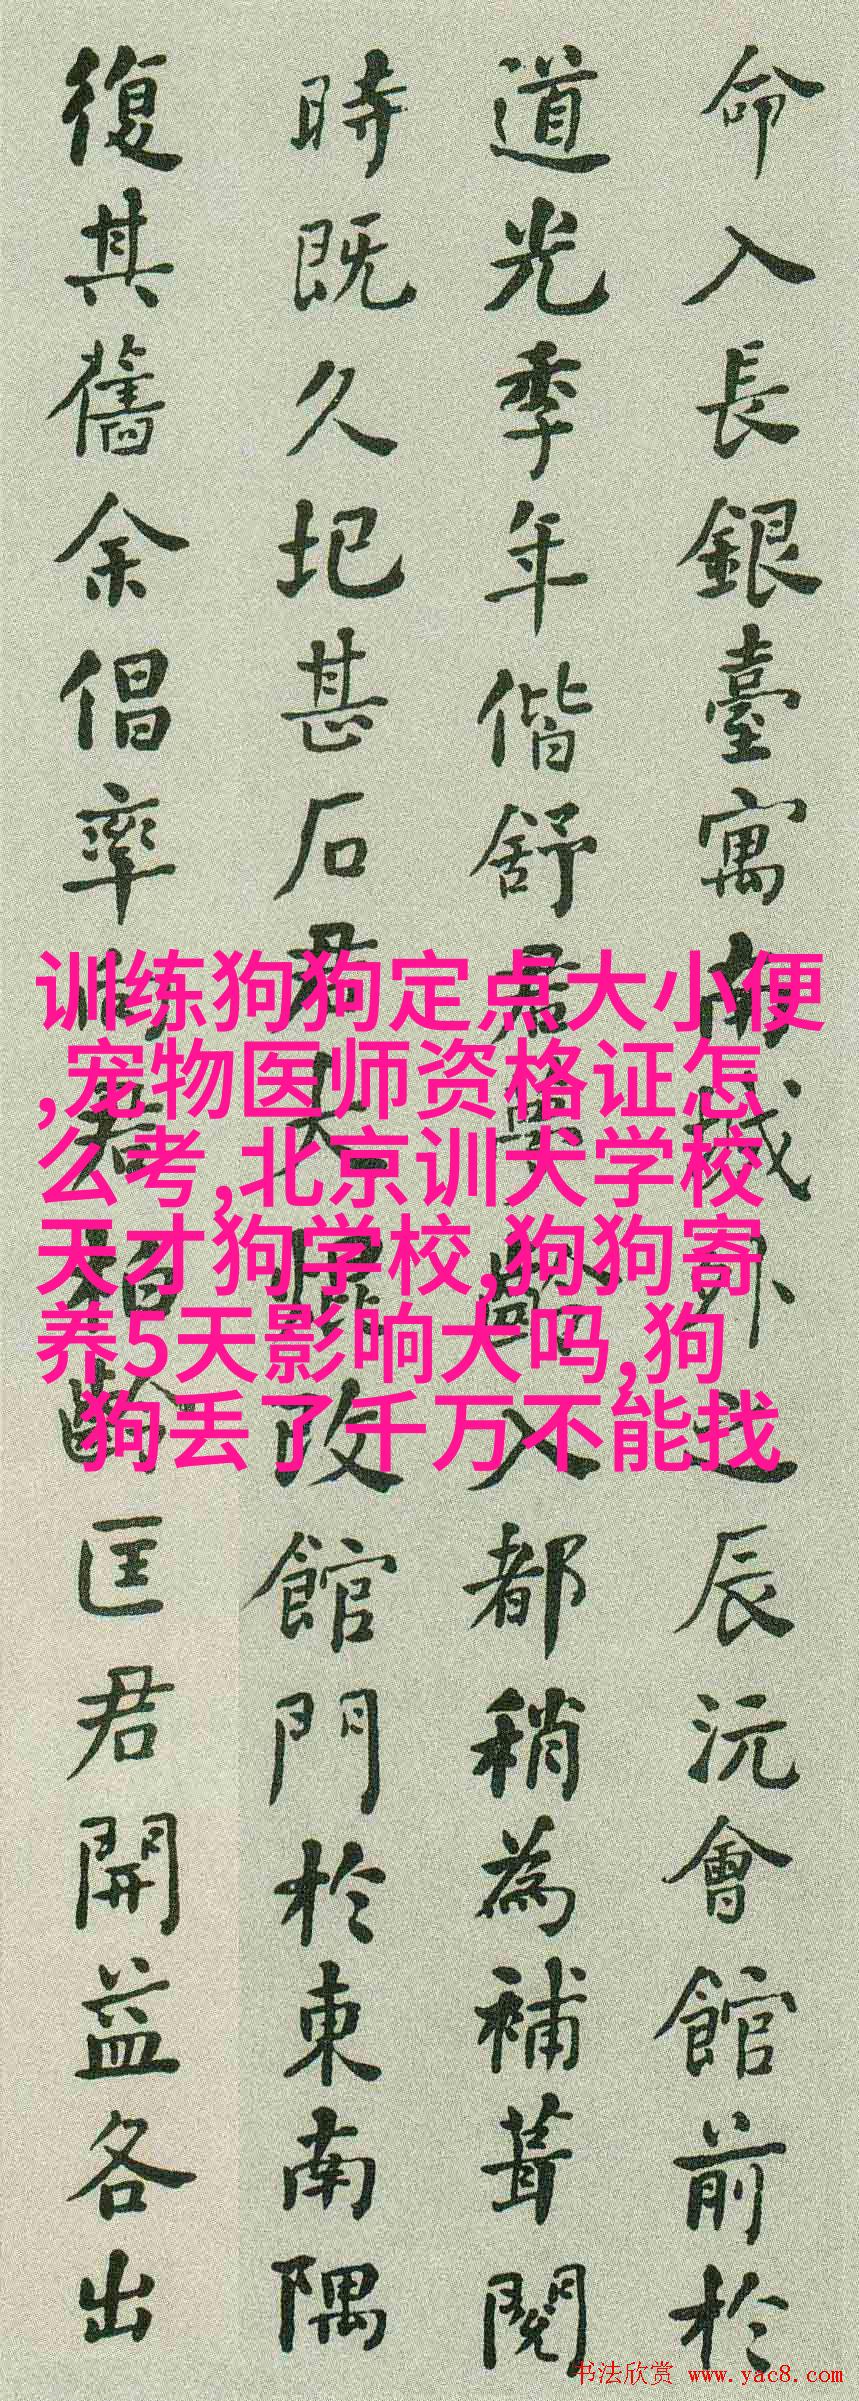 命入長銀臺寓南城外之辰沅會館前於
道光季年偕舒君入都稍為補葺閱
時既久圮甚石君大改館門於東南隅
復其舊余倡率君齡匡君開益各出
训练狗狗定点大小便
,宠物医师资格证怎
么考,北京训犬学校
天才狗学校,狗狗寄
养5天影响大吗,狗
狗丢了千万不能找
书法欣赏 www.yac8.com